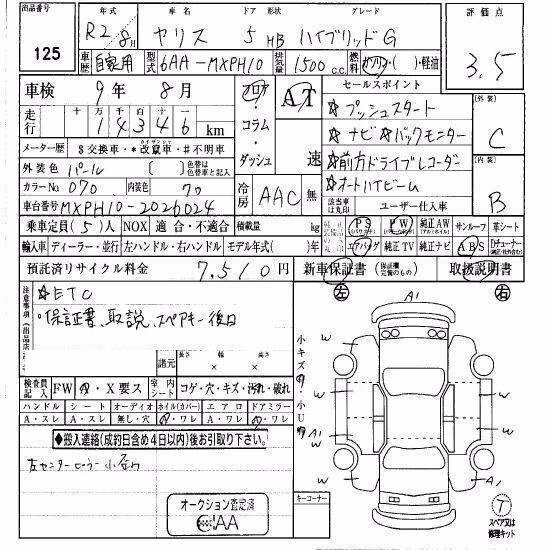 出品番号 年式 車名 ドア 形状 グレード 評価点
125 R2/8月 ヤリス 5 HB ハイブリッドG 3.5
車歴 自家用 型式 6AA-MXPH10 排気量 1500 c.c. 燃料 ガソリン( )・軽油
車検 9年 8月 フロア・コラム・ダッシュ AT 速 セールスポイント
走行 十万千百十一 14346 km ☆プッシュスタート 外装 C
☆ナビ☆バックモニター
メーター歴 $交換車・*改竄車・#不明車 ☆前方ドライブレコーダー
外装色 パール 色替は色替車と記入 ☆オートハイビーム 内装 B
カラーNo 070 内装色 冷房 AAC 無 該当車は丸印 ユーザー仕入車
車台番号 MXPH10-2026024
乗車定員(5)人 NOX 適合・不適合 積載量 kg PS PW 純正AW サンルーフ 革シート
輸入車 ディーラー・並行 左ハンドル・右ハンドル モデル年式( )年 エアバッグ 純正TV 純正ナビ ABS
預託済リサイクル料金 7,510円 新車保証書 取扱説明書
注意事項 ☆ETC 左 右
・保証書、取説、スペアキー後日 A1
諸元 長さ × 幅 × 高さ
小キズ 小U
検査員記入 FW ・X要ス 室内シート コゲ・穴・キズ・汚れ・破れ
ハンドル シート オーディオ ホイル(カバー) エアロ ドアミラー
A・スレ A・スレ 無し・穴 ・ワレ A・ワレ ・ワレ A1
◆搬入連絡(成約日含め4日以内)後お引取り下さい。
左センターピラー小 A1
オークション査定済
AA
キーコーナー
T
スペア又は修理キット